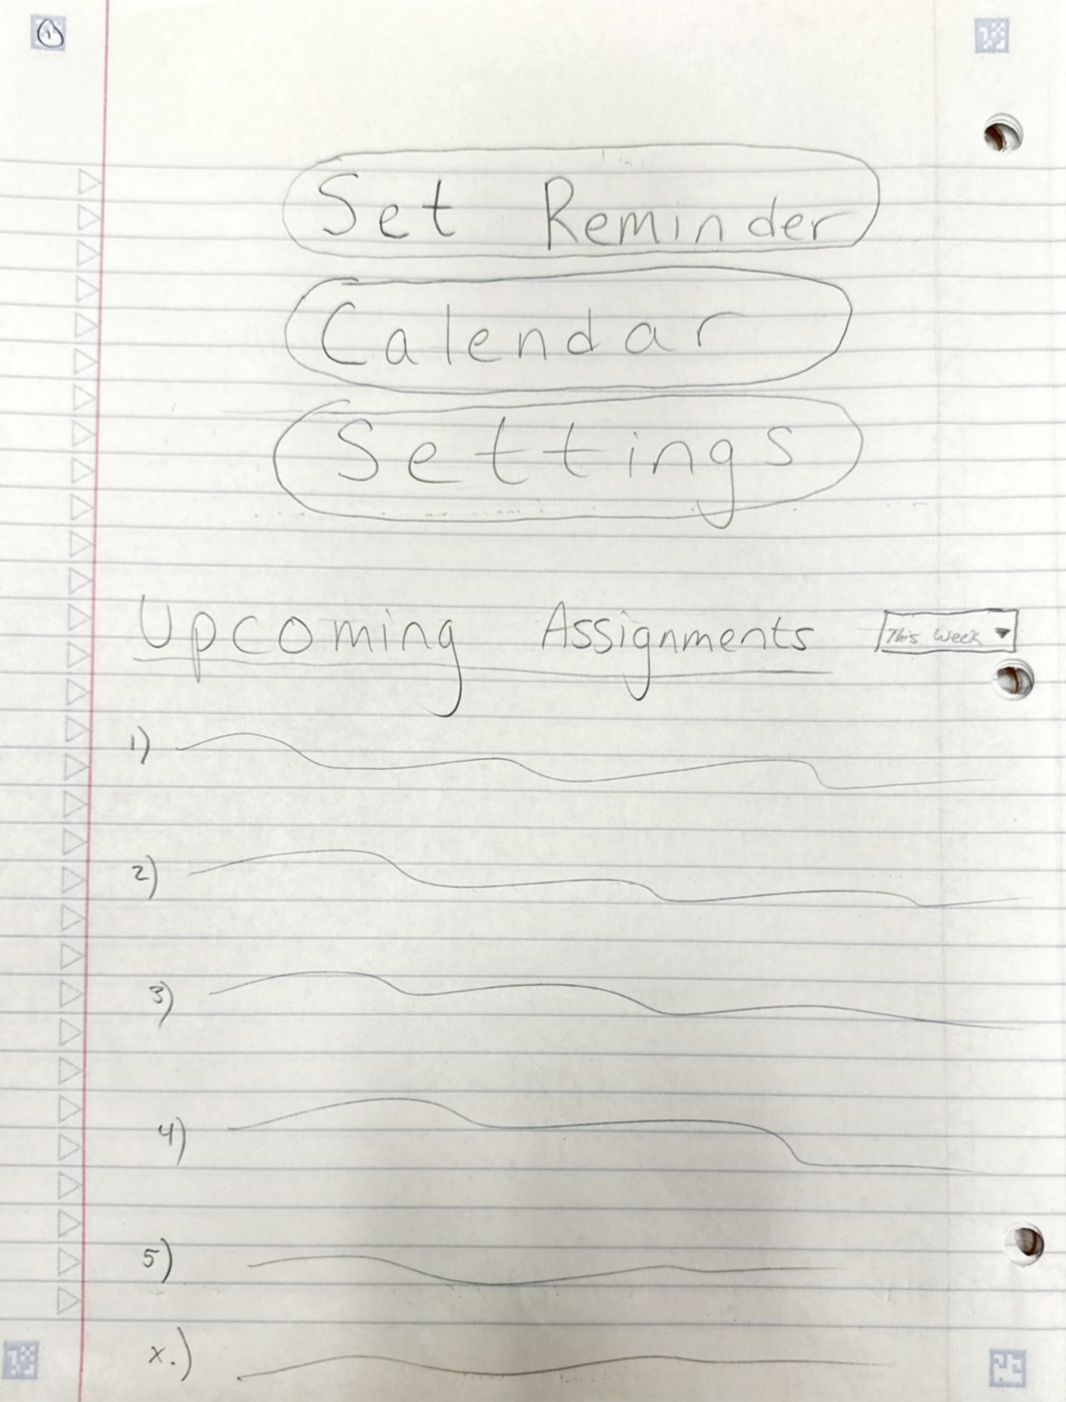 Set Reminder
Calendar
Settings
Upcoming Assignments This Week
1)
2)
3)
4)
5)
x.)